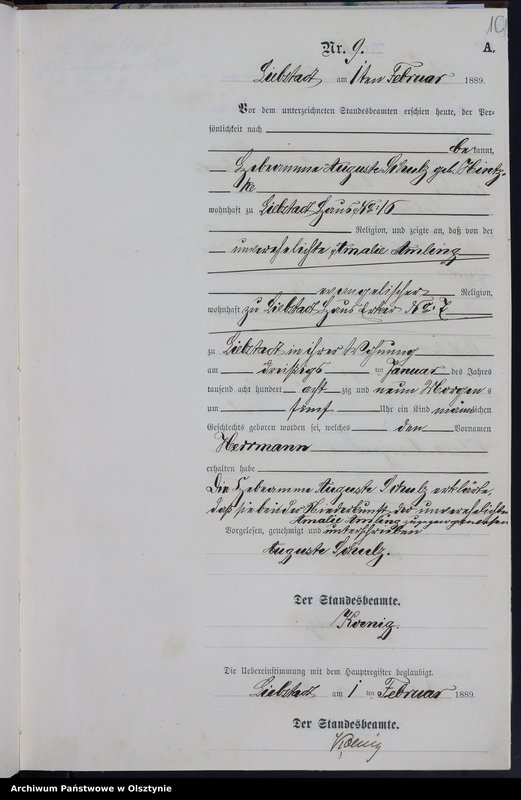 10
Nr. 9. A.
Liebstadt am 1ten Februar 1889.
Vor dem unterzeichneten Standesbeamten erschien heute, der Per-
sönlichkeit nach
be kannt,
Hebeamme Auguste Schulz geb.
wohnhaft zu Liebstadt Haus No: 16
Religion, und zeigte an, daß von der
unverehelichte Amalie Amling
evangelischer Religion,
wohnhaft zu Liebstadt Haus No: 7
zu Liebstadt in ihrer Wohnung
am dreißigs ten Januar des Jahres
tausend acht hundert acht zig und neun Morgen s
um fünf Uhr ein Kind männlichen
Geschlechts geboren worden sei, welches den Vornamen
Herrmann
erhalten habe
Die Hebeamme Auguste Schulz erklärte,
daß sie bei der Niederkunft der unverehelichten
Amalie Amling zugegen gewesen
Vorgelesen, genehmigt und unterschrieben
Auguste Schulz.
Der Standesbeamte.
Koenig.
Die Uebereinstimmung mit dem Hauptregister beglaubigt.
Liebstadt am 1 ten Februar 1889.
Der Standesbeamte.
Koenig
Archiwum Państwowe w Olsztynie